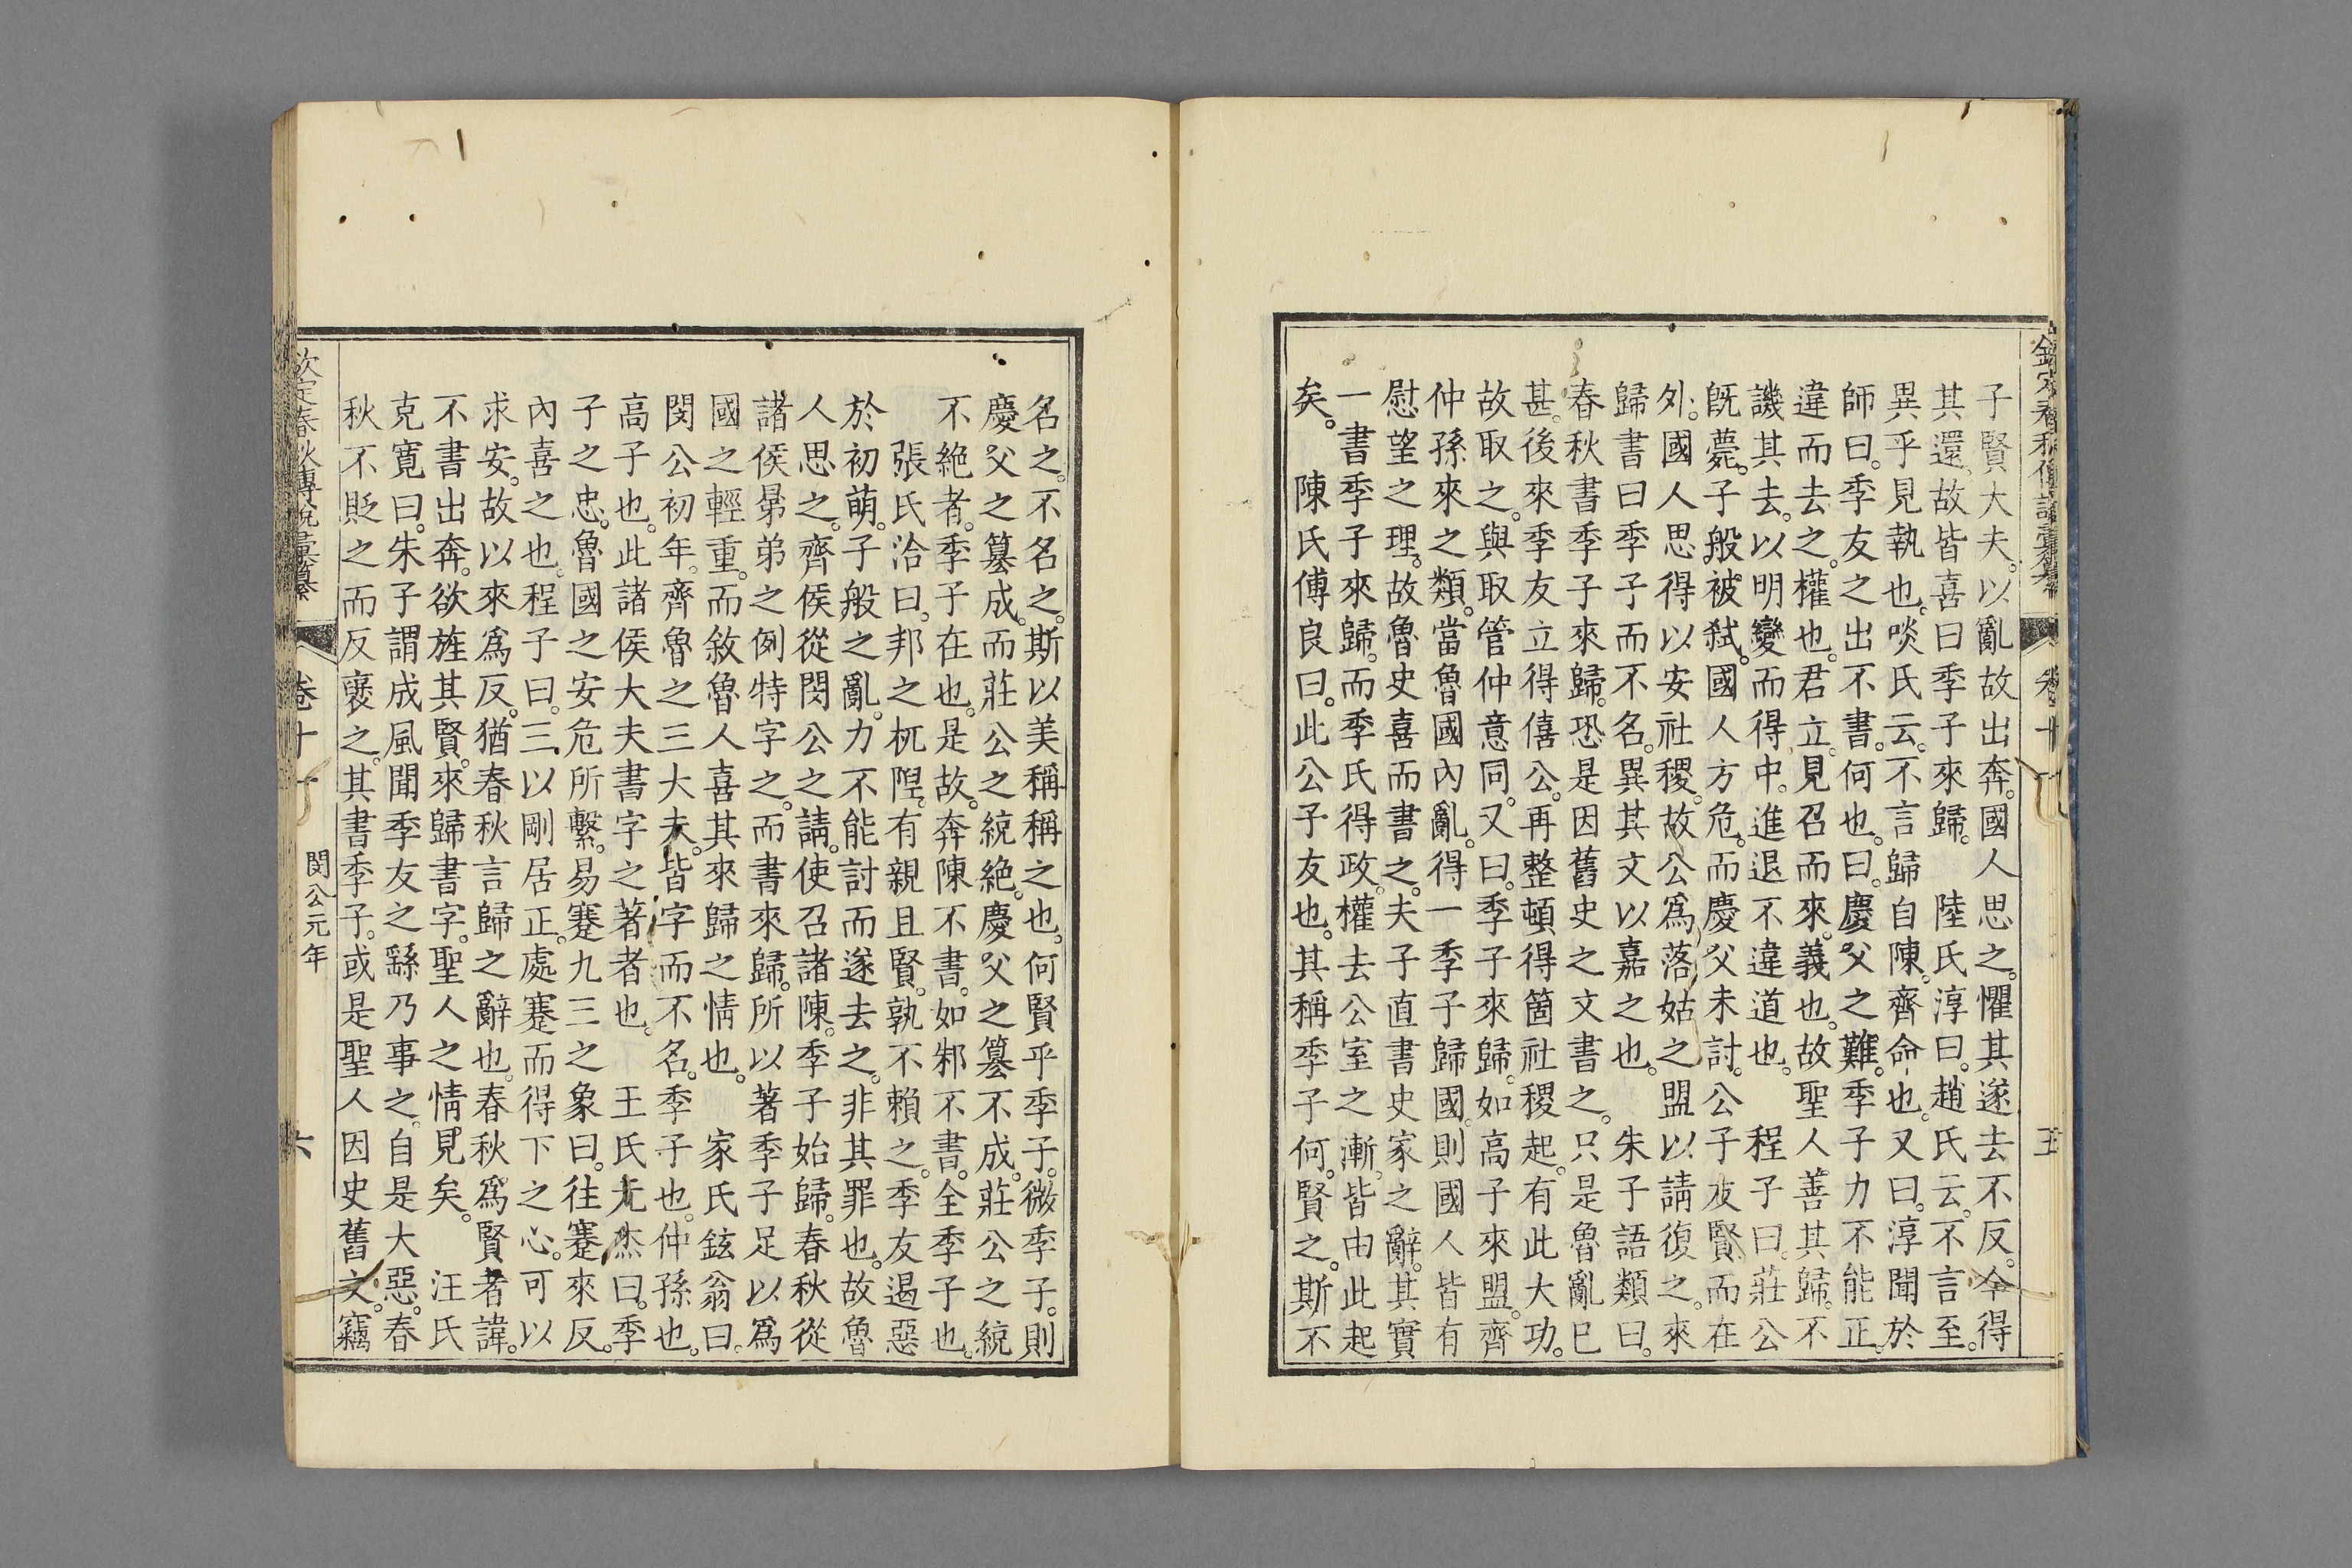 子賢大夫。以亂故出奔。國人思之。懼其遂去不反。今得
其還。故皆喜曰季子來歸。　陸氏淳曰。趙氏云。不言至。
異乎見執也。啖氏云。不言歸自陳。齊命也。又曰。淳聞於
師曰。季友之出不書。何也。曰。慶父之難。季子力不能正。
違而去之。權也。君立。見召而來。義也。故聖人善其歸。不
譏其去。以明變而得中。進退不違道也。　程子曰。莊公
旣薨。子般被弑。國人方危。而慶父未討。公子友賢而在
外。國人思得以安社稷。故公爲落姑之盟以請復之。來
歸書曰季子而不名。異其文以嘉之也。　朱子語類曰。
春秋書季子來歸。恐是因舊史之文書之。只是魯亂已
甚。後來季友立得僖公。再整頓得箇社稷起。有此大功。
故取之。與取管仲意同。又曰。季子來歸。如高子來盟。齊
仲孫來之類。當魯國內亂。得一季子歸國。則國人皆有
慰望之理。故魯史喜而書之。夫子直書史家之辭。其實
一書季子來歸。而季氏得政。權去公室之漸。皆由此起
矣。　陳氏傅良曰。此公子友也。其稱季子何。賢之。斯不
欽定春秋傳說彙纂
五
名之。不名之。斯以美稱稱之也。何賢乎季子。微季子。則
慶父之簒成。而莊公之統絕。慶父之簒不成。莊公之統
不絕者。季子在也。是故。奔陳不書。如邾不書。全季子也。
張氏洽曰。邦之杌隉。有親且賢。孰不賴之。季友遏惡
於初萌。子般之亂。力不能討而遂去之。非其罪也。故魯
人思之。齊侯從閔公之請。使召諸陳。季子始歸。春秋從
諸侯暴弟之例特字之。而書來歸。所以著季子足以爲
國之輕重。而敘魯人喜其來歸之情也。　家氏鉉翁曰。
閔公初年。齊魯之三大夫。皆字而不名。季子也。仲孫也。
高子也。此諸侯大夫書字之著者也。　王氏元杰曰。季
子之忠。魯國之安危所繫。易蹇九三之象曰。往蹇來反。
內喜之也。程子曰。三以剛居正。處蹇而得下之心。可以
求安。故以來爲反。猶春秋言歸之辭也。春秋爲賢者諱。
不書出奔。欲旌其賢。來歸書字。聖人之情見矣。　汪氏
克寬曰。朱子謂成風聞季友之繇乃事之。自是大惡。春
秋不貶之而反襃之。其書季子。或是聖人因史舊文。竊
欽定春秋傳說彙纂
卷十一
閔公元年
六